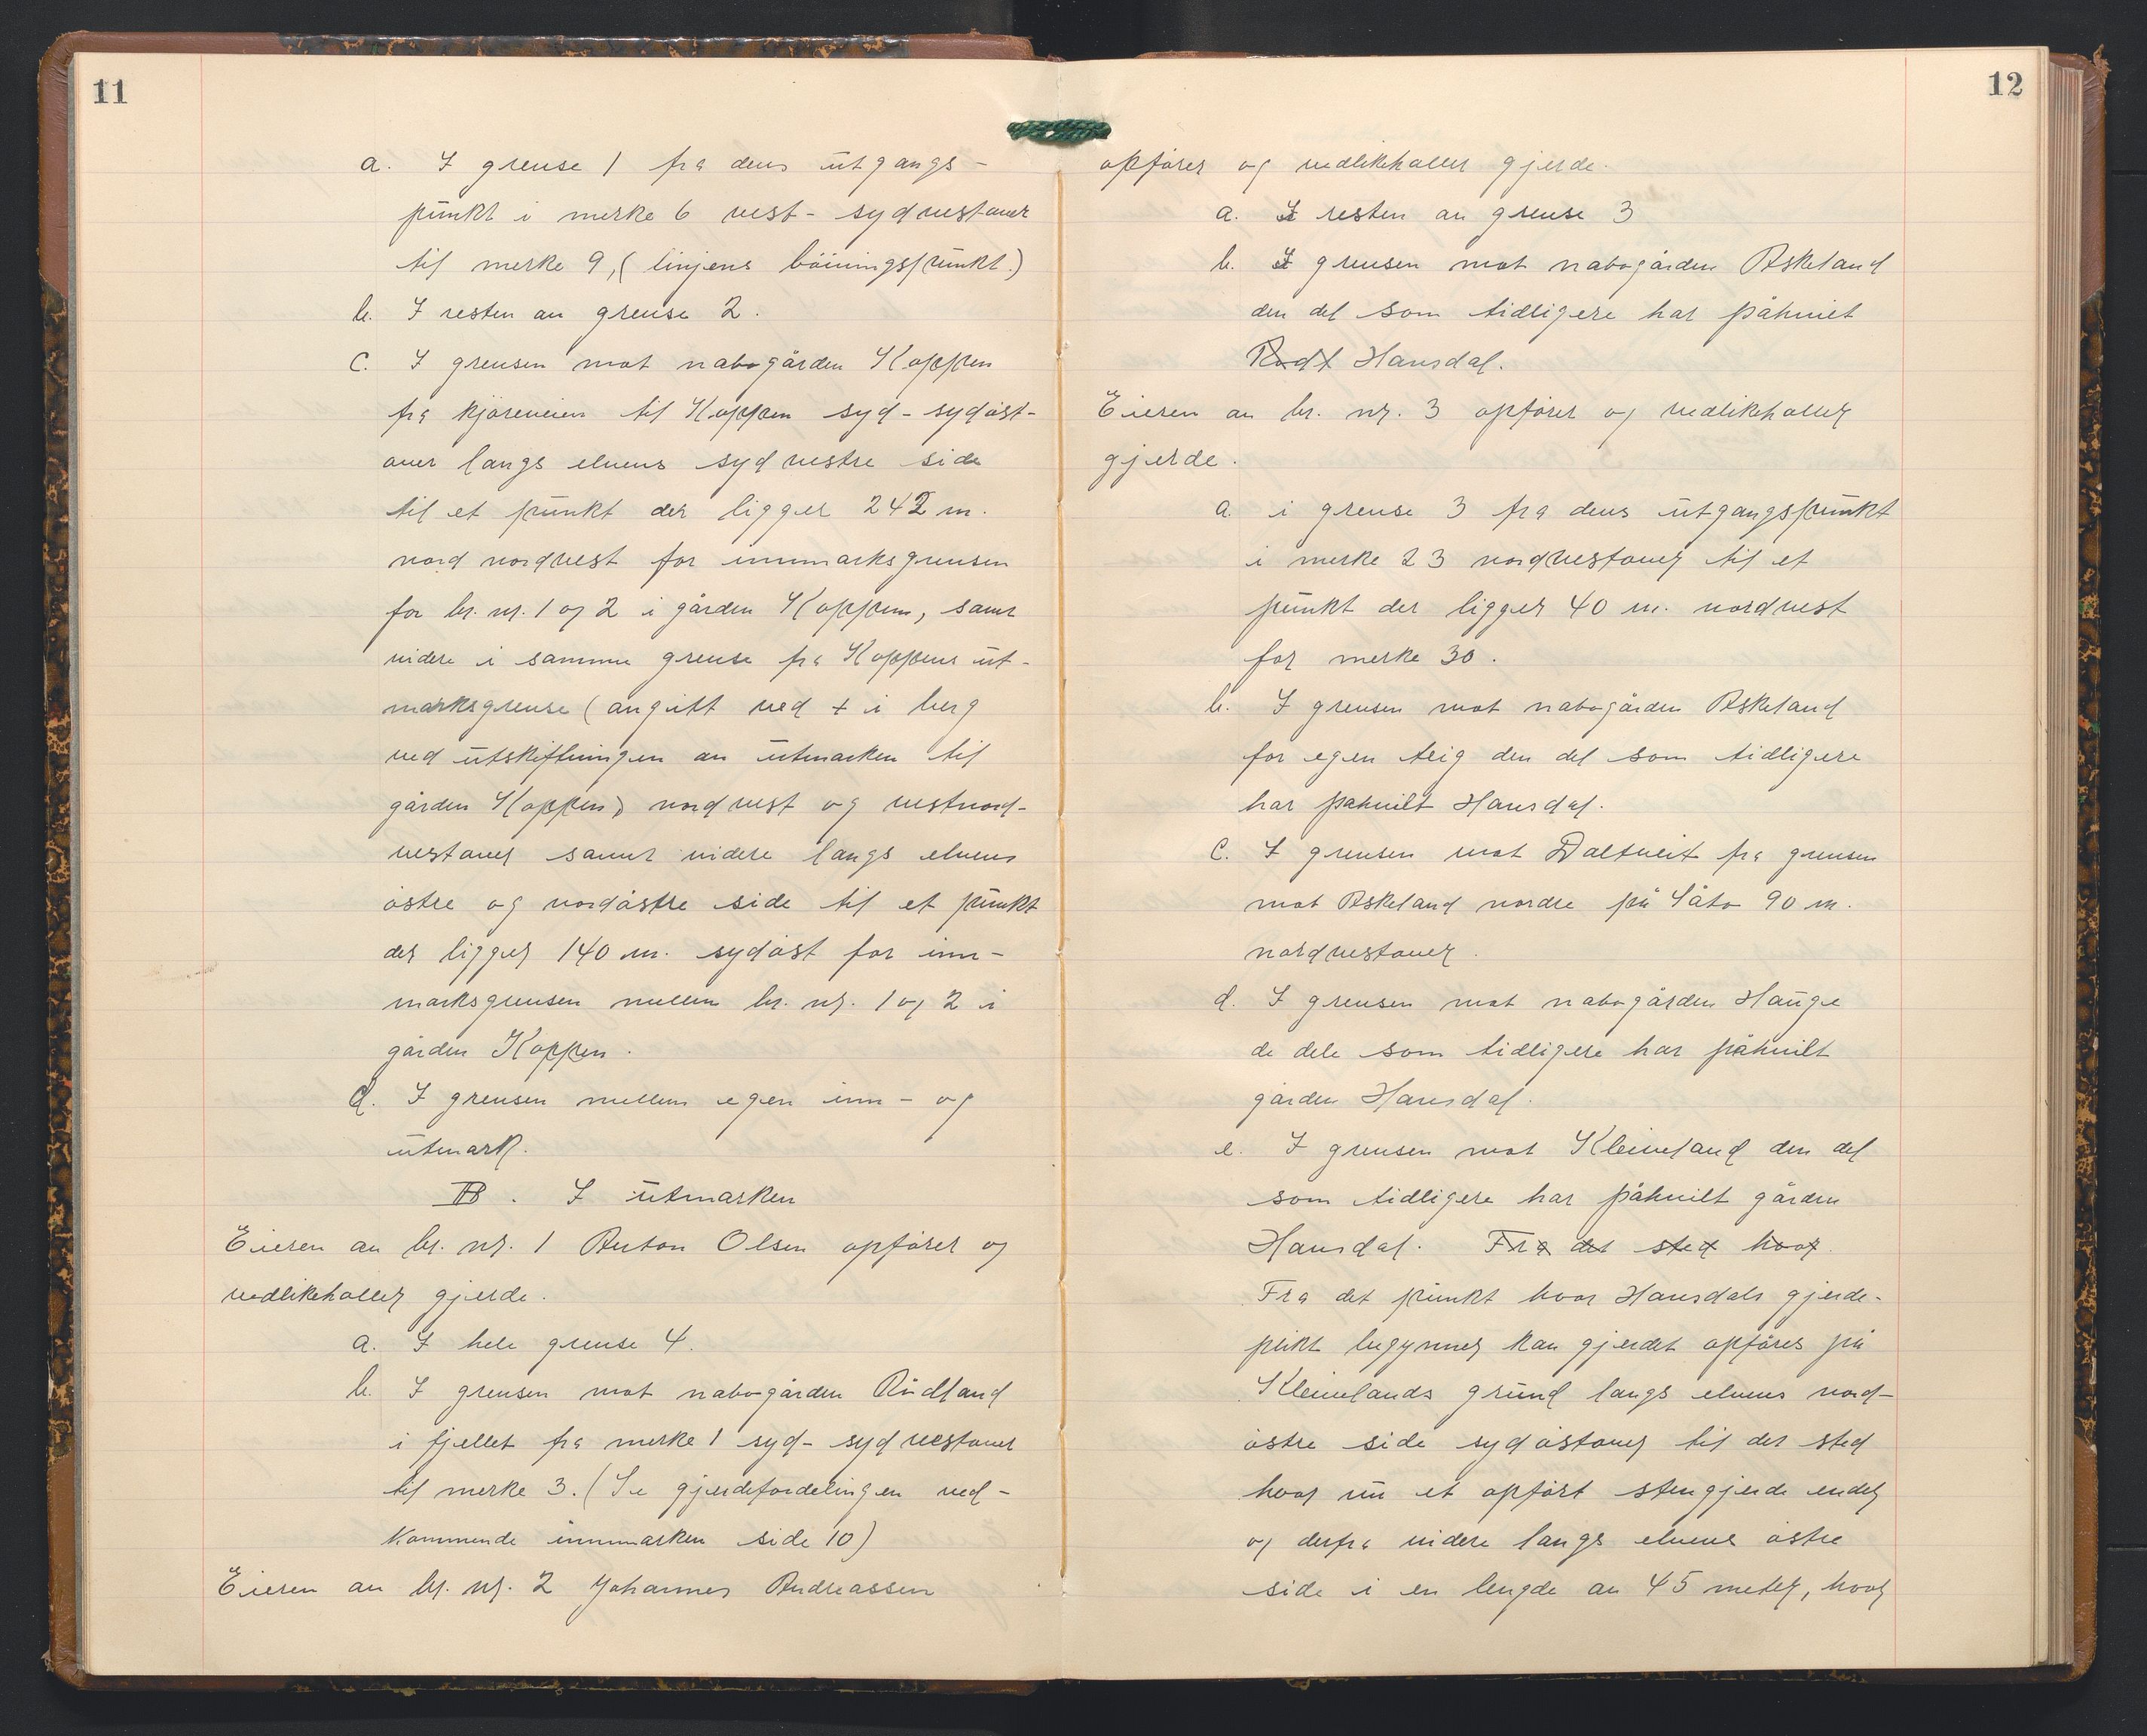 11
a. I grense 1 fra dens utgangs-
punkt i merke 6 vest-sydvestover
til merke 9, (linjens böiningspunkt.)
b. I resten av grense 2.
c. I grensen mot nabogården Koppen
fra kjøreveien til Koppen syd-sydøst-
over langs elvens sydvestre side
til et punkt der ligger 242 m.
nord nordvest for innmarksgrensen
for br. nr. 1 og 2 i gården Koppen, samt
videre i samme grense fra Koppens ut-
marksgrense (angitt ved + i berg
ved utskiftningen av utmarken til
gården Koppen) nordvest og vestnord-
vestover samt videre langs elvens
østre og nordøstre side til et punkt
der ligger 140 m. sydøst for inn-
marksgrensen mellem br. nr. 1 og 2 i
gården Koppen.
d. I grensen mellem egen inn- og
utmark.
B. I utmarken
Eieren av br. nr. 1 Anton Olsen opfører og
vedlikeholler gjerde.
a. I hele grense 4.
b. I grensen mot nabogården Rudland
i fjellet fra merke 1 syd-sydvestover
til merke 3. (Se gjerdefordelingen ved-
kommende innmarken side 10)
Eieren av br. nr. 2 Johannes Andreassen
12
opfører og vedlikeholler gjerde.
a. I resten av grense 3
b. I grensen mot nabogården Askeland
den del som tidligere har påhvilt
Hausdal.
Eieren av br. nr. 3 opfører og vedlikeholler
gjerde.
a. i grense 3 fra dens utgangspunkt
i merke 23 nordvestover til et
punkt der ligger 40 m. nordvest
for merke 30.
b. I grensen mot nabogården Askeland
for egen teig den del som tidligere
har påhvilt Hausdal.
c. I grensen mot Daltveit fra grensen
mot Askeland nordre på Såto 90 m.
nordvestover.
d. I grensen mot nabogården Hauge
de dele som tidligere har påhvilt
gården Hausdal.
e. I grensen mot Kleiveland den del
som tidligere har påhvilt gården
Hausdal. Fra det sted hvor
Fra det punkt hvor Hausdals gjerde-
plikt begynner kan gjerdet opføres på
Kleivelands grund langs elvens nord-
østre side sydøstover til det sted
hvor nu et opført stengjerde ender
og derfra videre langs elvens østre
side i en lengde av 45 meter, hvor